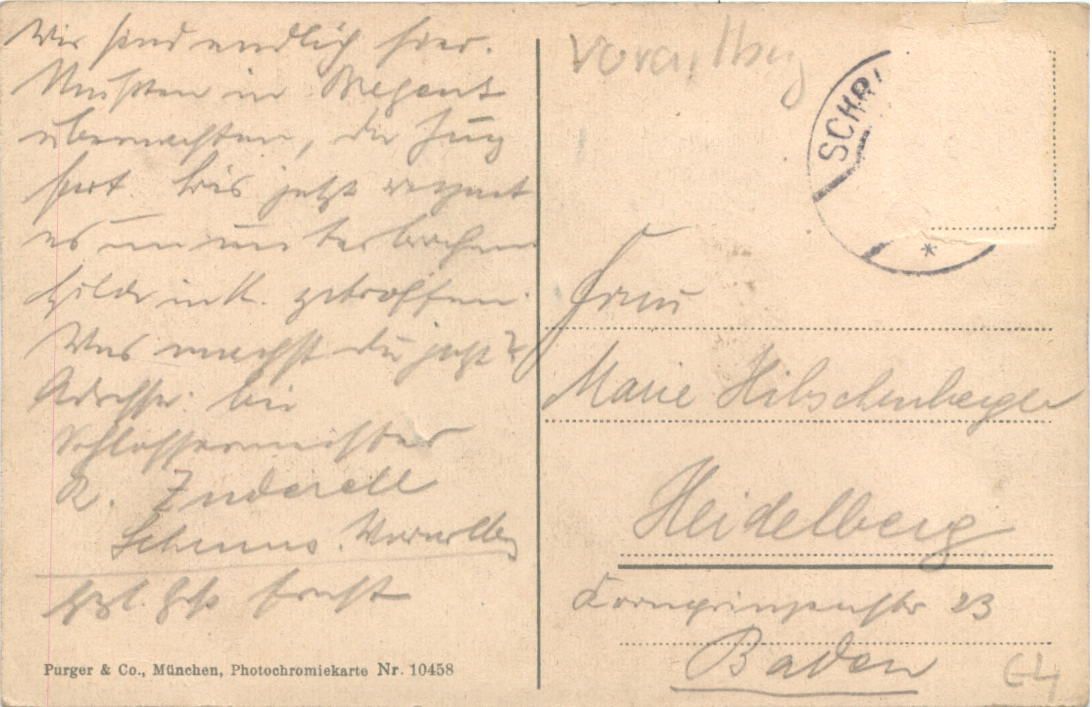 Wir sind endlich hier.
Mussten in Bregenz
übernachten, der Zug
fort. Bis jetzt regnet
es ununterbrochen
Hilde in K. getroffen.
Was machst du jetzt?
Adresse: bei
Schlossermeister
R. Zuderell
Schruns. Vorarlbg
Hzl. Gss Ernst
Purger & Co., München, Photochromiekarte Nr. 10458
Vorarlbg
SCHR
Frau
Marie Hilschenberger
Heidelberg
23
Baden